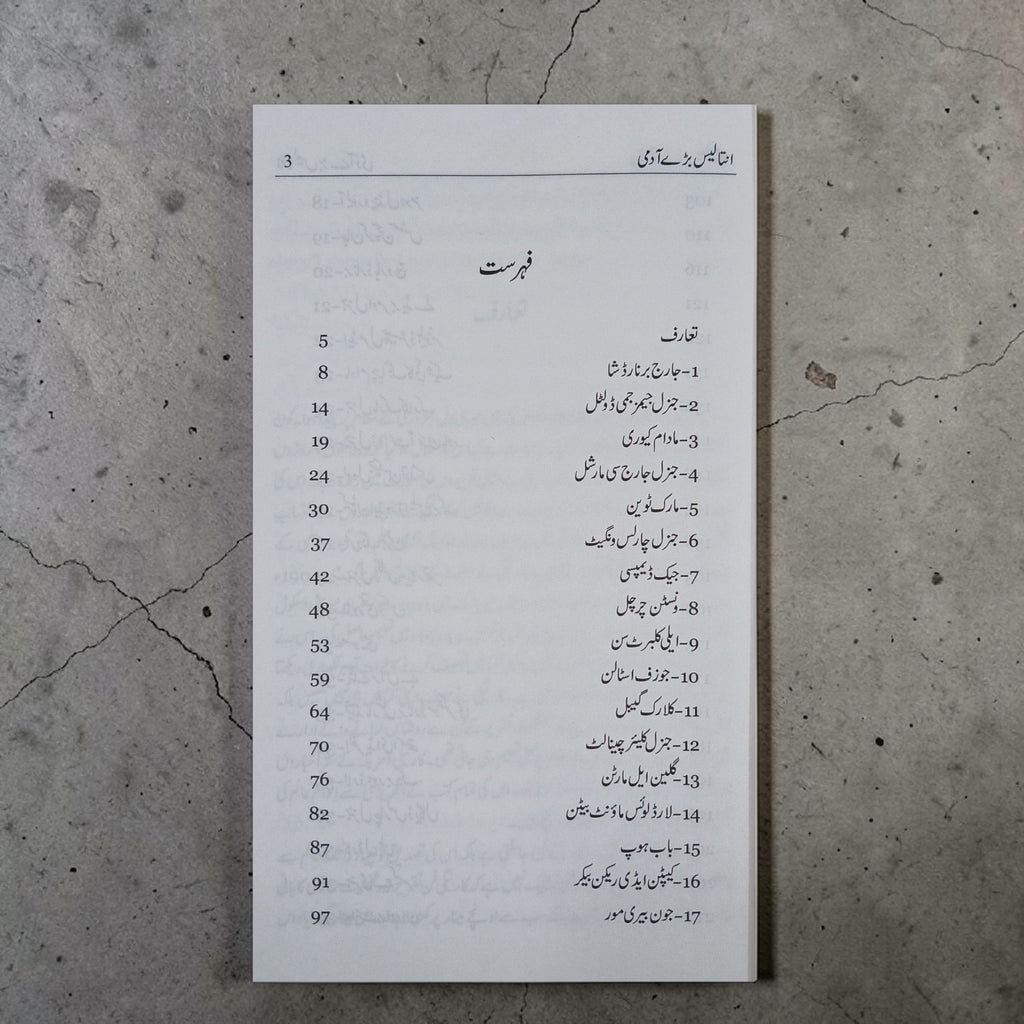 انتالیس بڑے آدمی 3
فہرست
تعارف 5
1-جارج برنارڈ شا 8
2-جنرل جیمز جمی ڈولٹل 14
3-مادام کیوری 19
4-جنرل جارج سی مارشل 24
5-مارک ٹوین 30
6-جنرل چارلس ونگیٹ 37
7-جیک ڈیمپسی 42
8-ونسٹن چرچل 48
9-ایلی کلبرٹ سن 53
10-جوزف اسٹالن 59
11-کلارک گیبل 64
12-جنرل کلیئر چینالٹ 70
13-گلین ایل مارٹن 76
14-لارڈ لوئس ماؤنٹ بیٹن 82
15-باب ہوپ 87
16-کیپٹن ایڈی ریکن بیکر 91
17-جون بیری مور 97